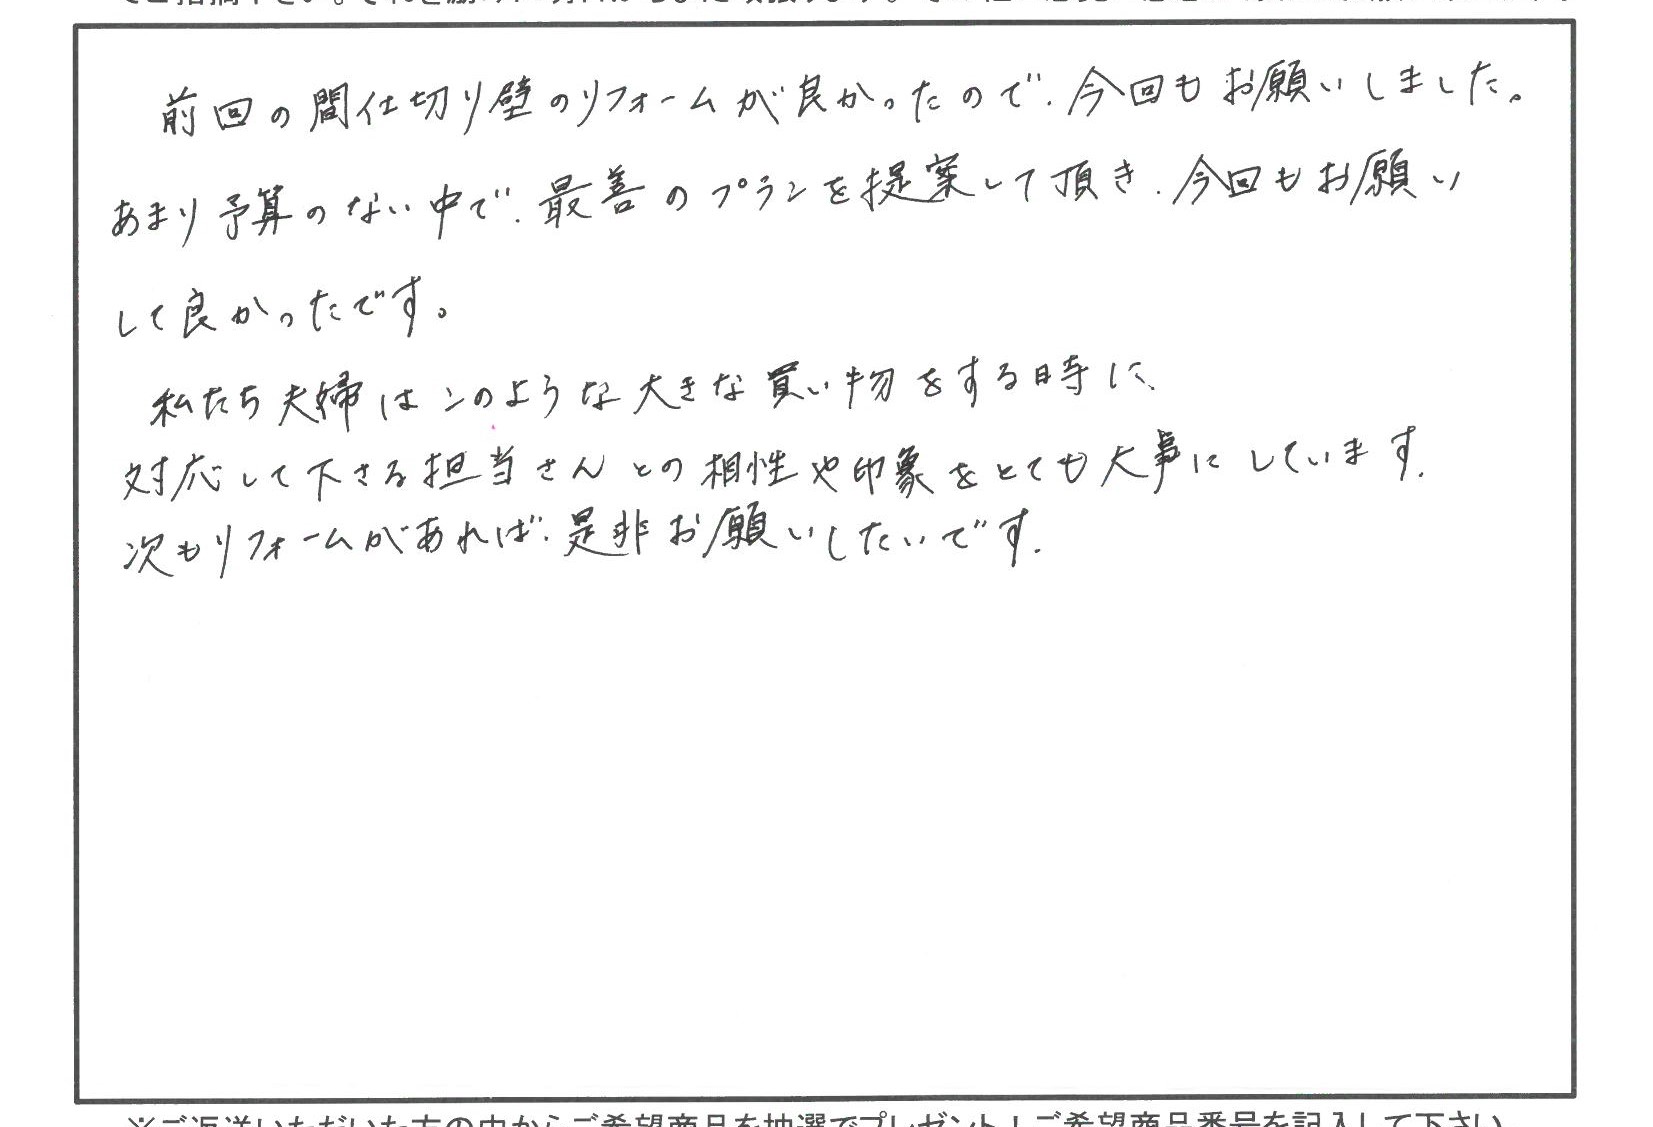 前回の間仕切り壁のリフォームが良かったので、今回もお願いしました。
あまり予算のない中で、最善のプランを提案して頂き、今回もお願い
して良かったです。
私たち夫婦はこのような大きな買い物をする時に、
対応して下さる担当さんとの相性や印象をとても大事にしています。
次もリフォームがあれば、是非お願いしたいです。
※ご返送いただいた方の中からご希望商品を抽選でプレゼント！ご希望商品番号を記入して下さい